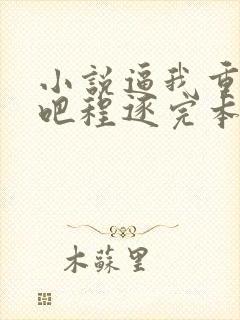 小說逼我重
吧程逐完本
木蘇里